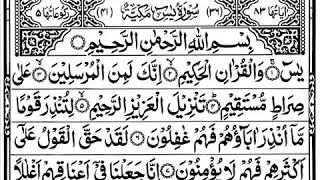 اٰیاتها ۸۳ (۳۶) سُوْرَةُ يٰسٓ مَكِّيَّةٌ (۴۱) رُكُوْعَاتُهَا ۵
بِسْمِ اللّٰهِ الرَّحْمٰنِ الرَّحِيْمِ
يٰسٓ ۝۱ وَالْقُرْاٰنِ الْحَكِيْمِ ۝۲ اِنَّكَ لَمِنَ الْمُرْسَلِيْنَ ۝۳ عَلٰى
صِرَاطٍ مُّسْتَقِيْمٍ ۝۴ تَنْزِيْلَ الْعَزِيْزِ الرَّحِيْمِ ۝۵ لِتُنْذِرَ قَوْمًا
مَّاۤ اُنْذِرَ اٰبَآؤُهُمْ فَهُمْ غٰفِلُوْنَ ۝۶ لَقَدْ حَقَّ الْقَوْلُ عَلٰۤى
اَكْثَرِهِمْ فَهُمْ لَا يُؤْمِنُوْنَ ۝۷ اِنَّا جَعَلْنَا فِيْۤ اَعْنَاقِهِمْ اَغْلٰلًا